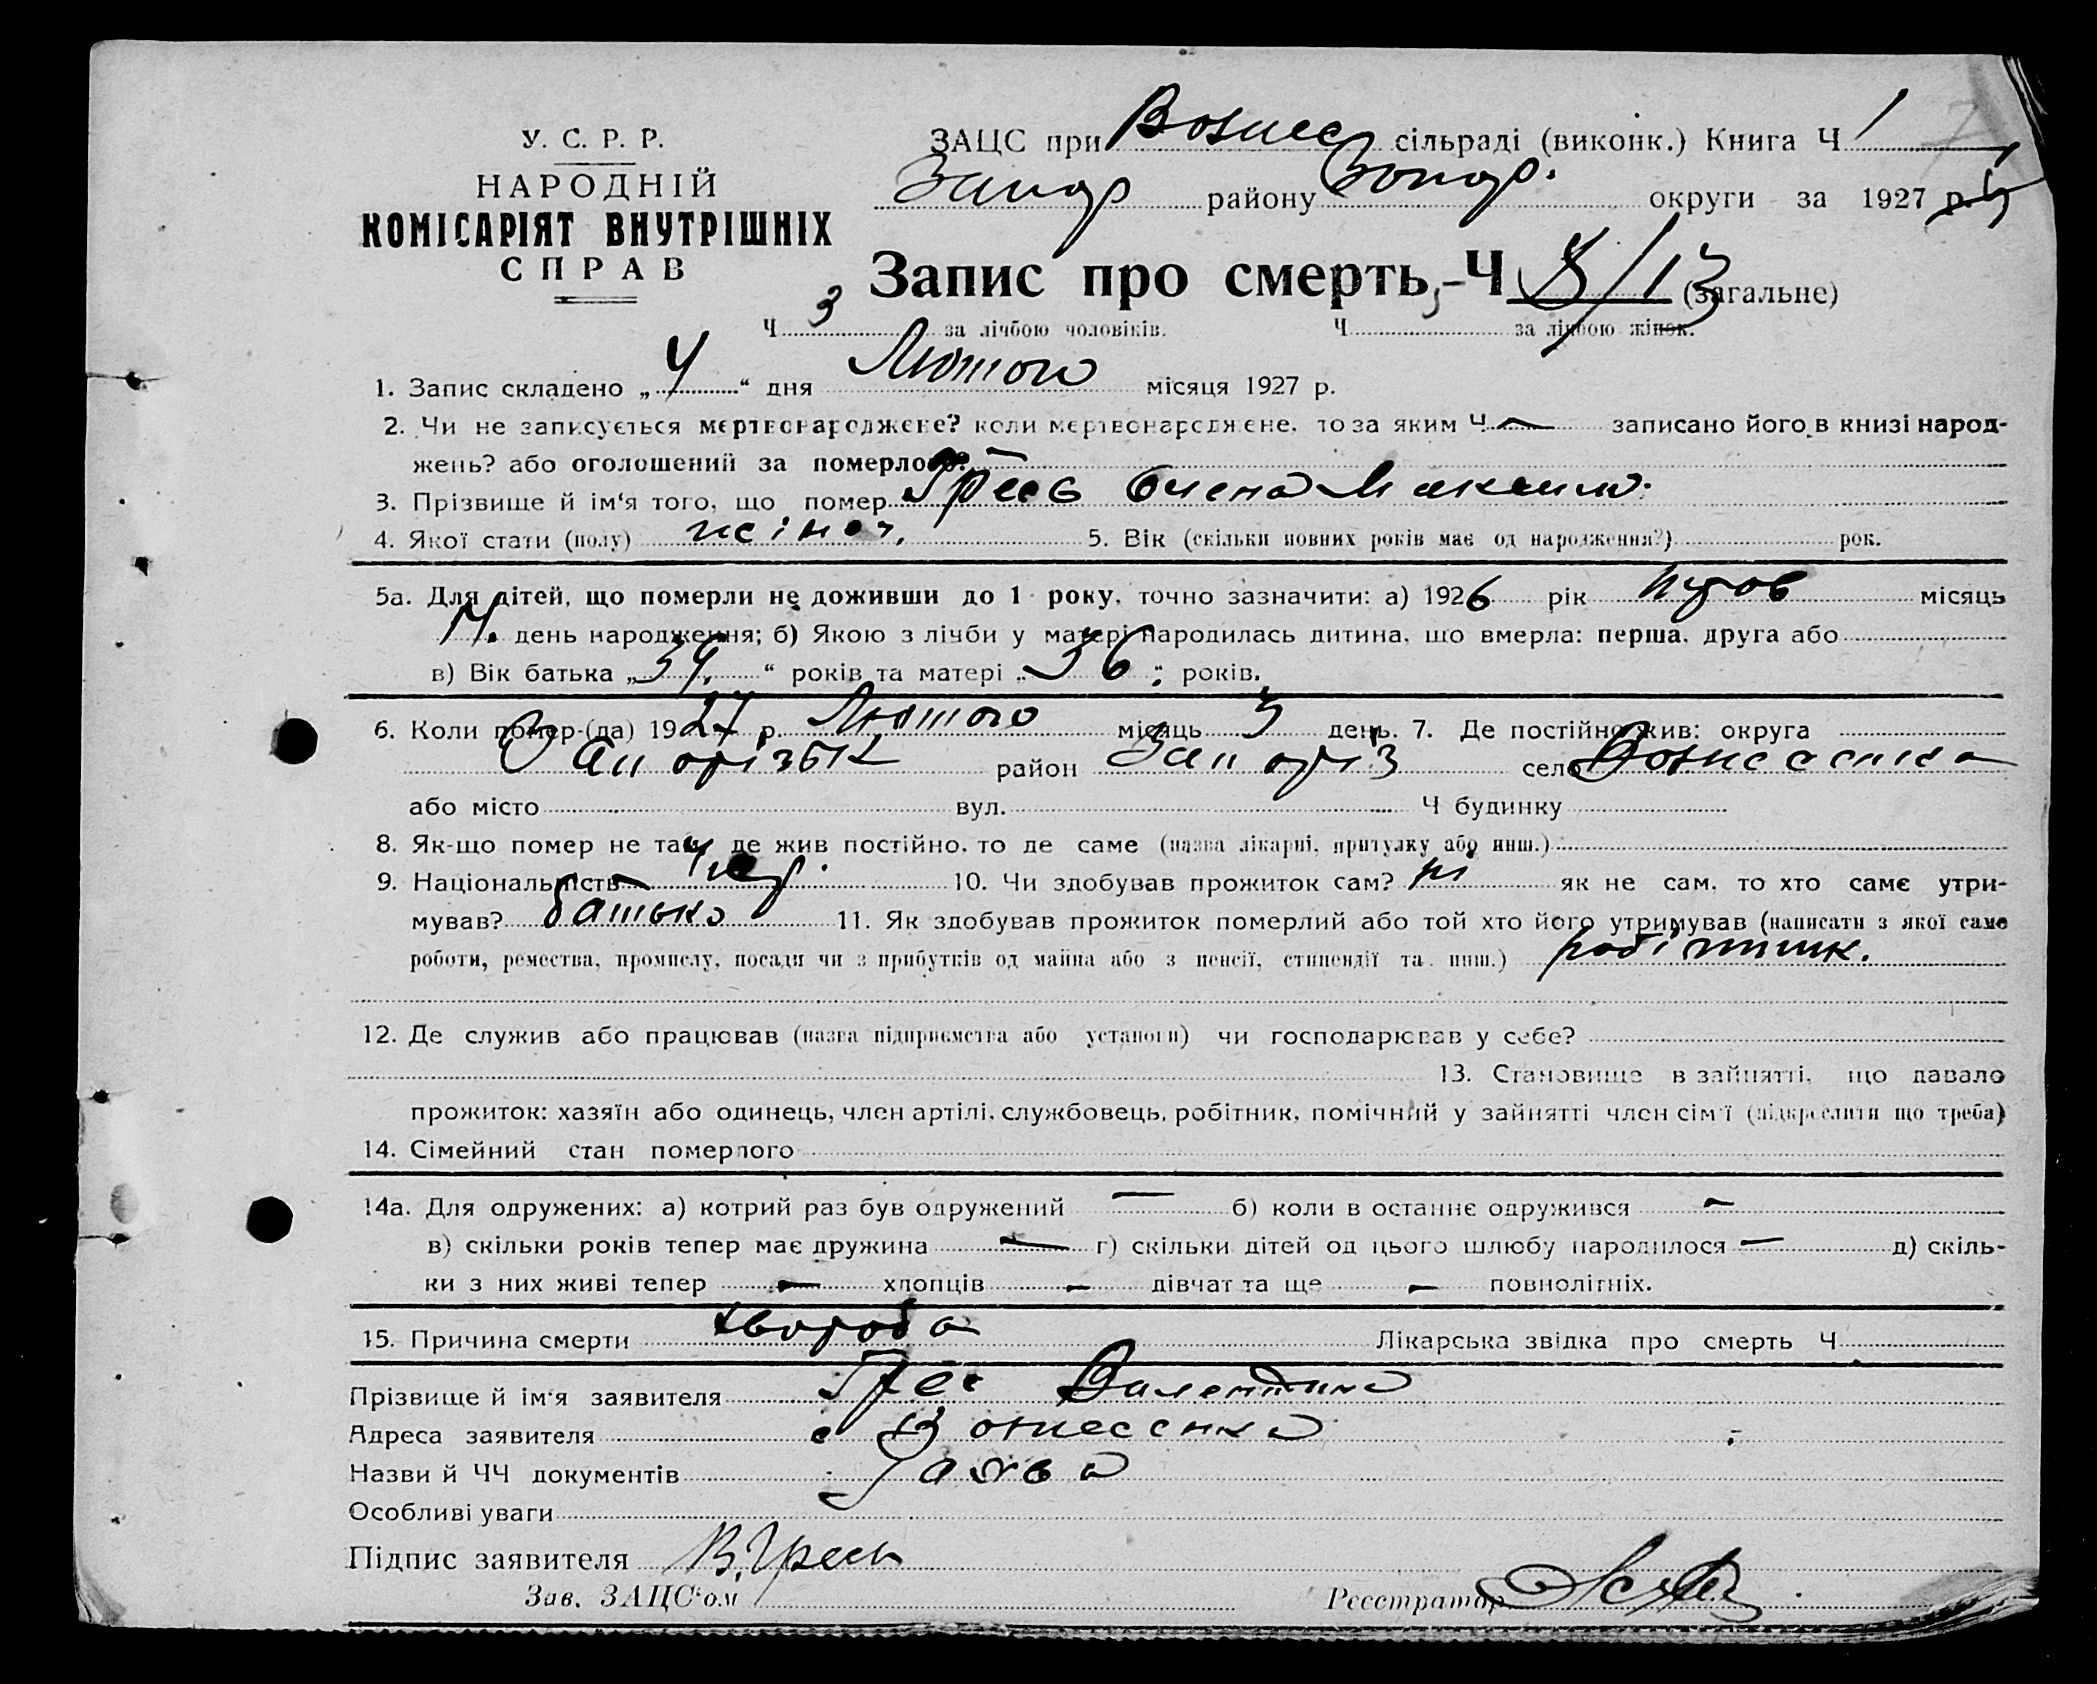 У. С. Р. Р.
НАРОДНІЙ
КОМІСАРІЯТ ВНУТРІШНІХ
СПРАВ
ЗАЦС при Вознес сільраді (виконк.) Книга Ч 1
Запор району Запор. округи за 1927 р.
Запис про смерть, Ч 8/13 (загальне)
Ч 3 за лічбою чоловіків. Ч за лічбою жінок.
1. Запис складено „ 4 “ дня Лютого місяця 1927 р.
2. Чи не записується мертвонароджене? коли мертвонароджене, то за яким Ч — записано його в книзі народ-
жень? або оголошений за померлого? —
3. Прізвище й ім‘я того, що помер Гресь Олена Максим.
4. Якої стати (полу) жіноч. 5. Вік (скільки повних років має од народження?) рок.
5а. Для дітей, що померли не доживши до 1 року, точно зазначити: а) 1926 рік місяць
день народження; б) Якою з лічби у матері народилась дитина, що вмерла: перша, друга або
в) Вік батька „ 34. “ років та матері „ 36 “ років.
6. Коли помер-(ла) 1927 р. Лютого місяць 3 день. 7. Де постійно жив: округа
Запорізьк район Запоріз село Вознесенка
або місто вул. Ч будинку
8. Як-що помер не там, де жив постійно, то де саме (назва лікарні, притулку або инш.)
9. Національність Укр. 10. Чи здобував прожиток сам? ні як не сам, то хто саме утри-
мував? батько 11. Як здобував прожиток померлий або той хто його утримував (написати з якої саме
роботи, ремества, промислу, посади чи з прибутків од майна або з пенсії, стипендії та инш.) робітник.
12. Де служив або працював (назва підприємства або установи) чи господарював у себе?
13. Становище в зайнятті, що давало
прожиток: хазяїн або одинець, член артілі, службовець, робітник, помічний у зайнятті член сім‘ї (підкреслити що треба)
14. Сімейний стан померлого
14а. Для одружених: а) котрий раз був одружений — б) коли в останнє одружився —
в) скільки років тепер має дружина — г) скільки дітей од цього шлюбу народилося — д) скіль-
ки з них живі тепер — хлопців — дівчат та ще — повнолітніх.
15. Причина смерти хвороба Лікарська звідка про смерть Ч
Прізвище й ім‘я заявителя Грес Валентина
Адреса заявителя с Вознесенка
Назви й ЧЧ документів Заява
Особливі уваги
Підпис заявителя В. Гресь
Зав. ЗАЦС‘ом Реєстратор